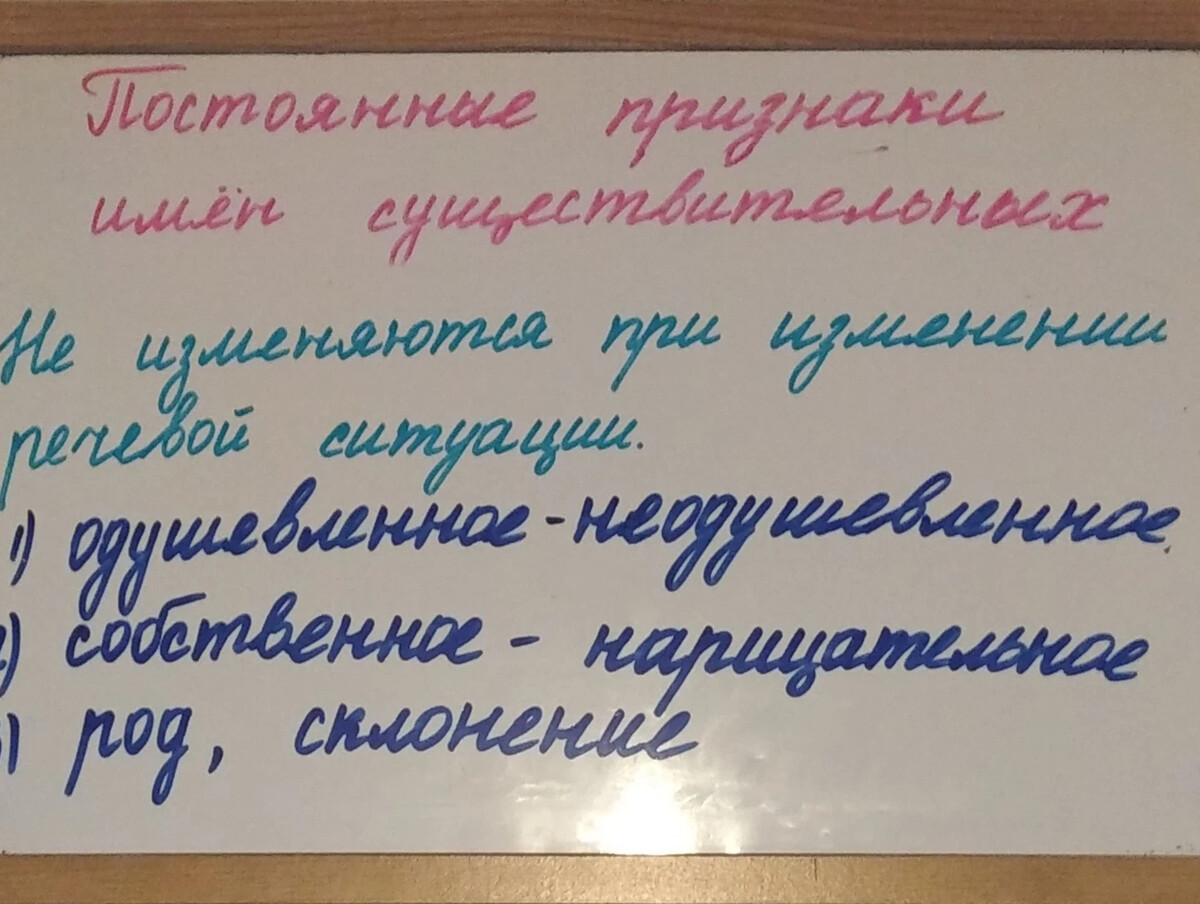 Постоянные признаки
имён существительных
Не изменяются при изменении
речевой ситуации.
1) одушевленное - неодушевленное.
2) собственное - нарицательное
3) род, склонение